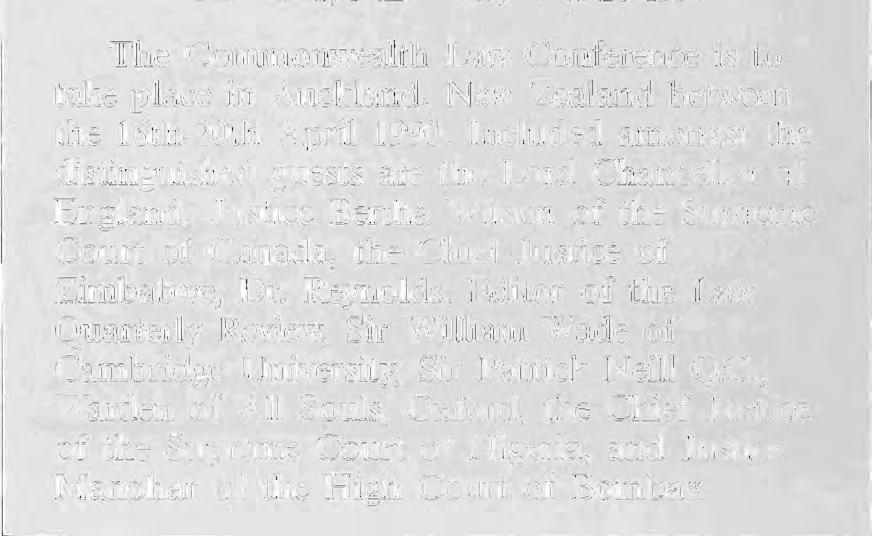 The Commonwealth Law Conference is to
take place in Auckland, New Zealand between
the 16th-20th April 1990. Included amongst the
distinguished guests are the Lord Chancellor of
England, Justice Bertha Wilson of the Supreme
Court of Canada, the Chief Justice of
Zimbabwe, Dr. Reynolds, Editor of the Law
Quarterly Review, Sir William Wade of
Cambridge University, Sir Patrick Neill Q.C.,
Warden of All Souls, Oxford, the Chief Justice
of the Supreme Court of Nigeria, and Justice
Manohar of the High Court of Bombay.